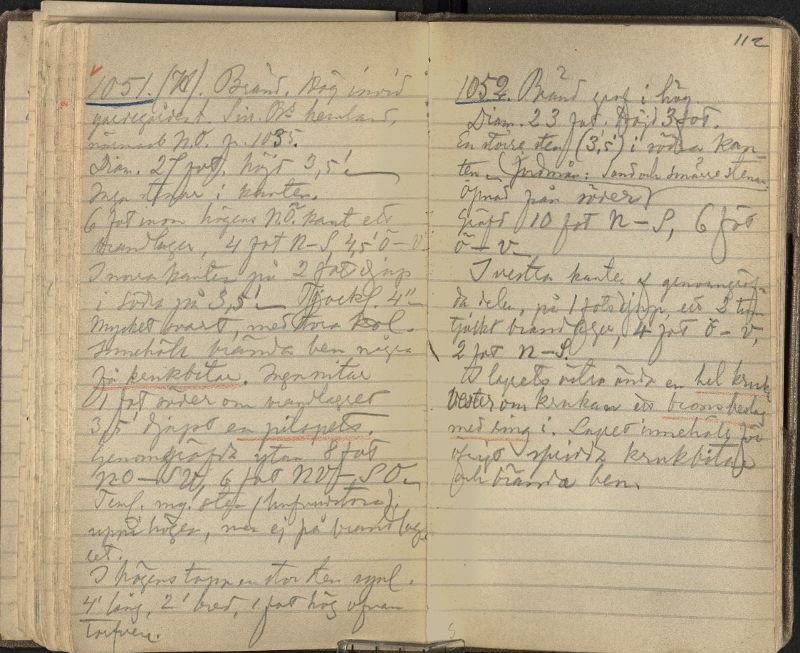 1051. (H). Bränd. Hög invid
gärdesgården. Lin. Os hemland,
närmast N.O. fr. 1035.
Diam. 27 fot, höjd 3,5'.
Inga stenar i kanten.
6 fot inom högens NÖ. kant ett
brandlager, 4 fot N-S, 4,5' Ö-V
I norra kanten på 2 fots djup
i södra på 3,5'. Tjockl. 4"
Mycket svart, med stora kol.
Innehöll brända ben några
få krukbitar. Inga nitar
1 fot söder om brandlagret
3,5' djupt en pilspets.
Genomgräfda ytan 8 fot
NO-SV, 6 fot NV-SO.
Teml. my. sten (hufvudstora)
uppi högen, men ej på brandlag-
ret.
I högens topp en stor sten synl.
4' lång, 2' bred, 1 fot hög ofvan
torfven.
112
1052. Bränd graf i hög
Diam. 23 fot. Höjd 3 fot.
En större sten (3,5') i södra kan-
ten. Jordmån: Sand och smärre stenar.
Öpnad från söder
Gräfd 10 fot N-S, 6 fot
Ö-V.
I vestra kanten af genomgräf-
da delen, på 1 fots djup, ett 2 tum
tjockt brandlager, 4 fot Ö-V,
2 fot N-S.
I lagrets östra ända en hel kruk
Vester om krukan ett bronsbeslag
med ring i. Lagret innehöll för
öfrigt spridda krukbitar
och brända ben.